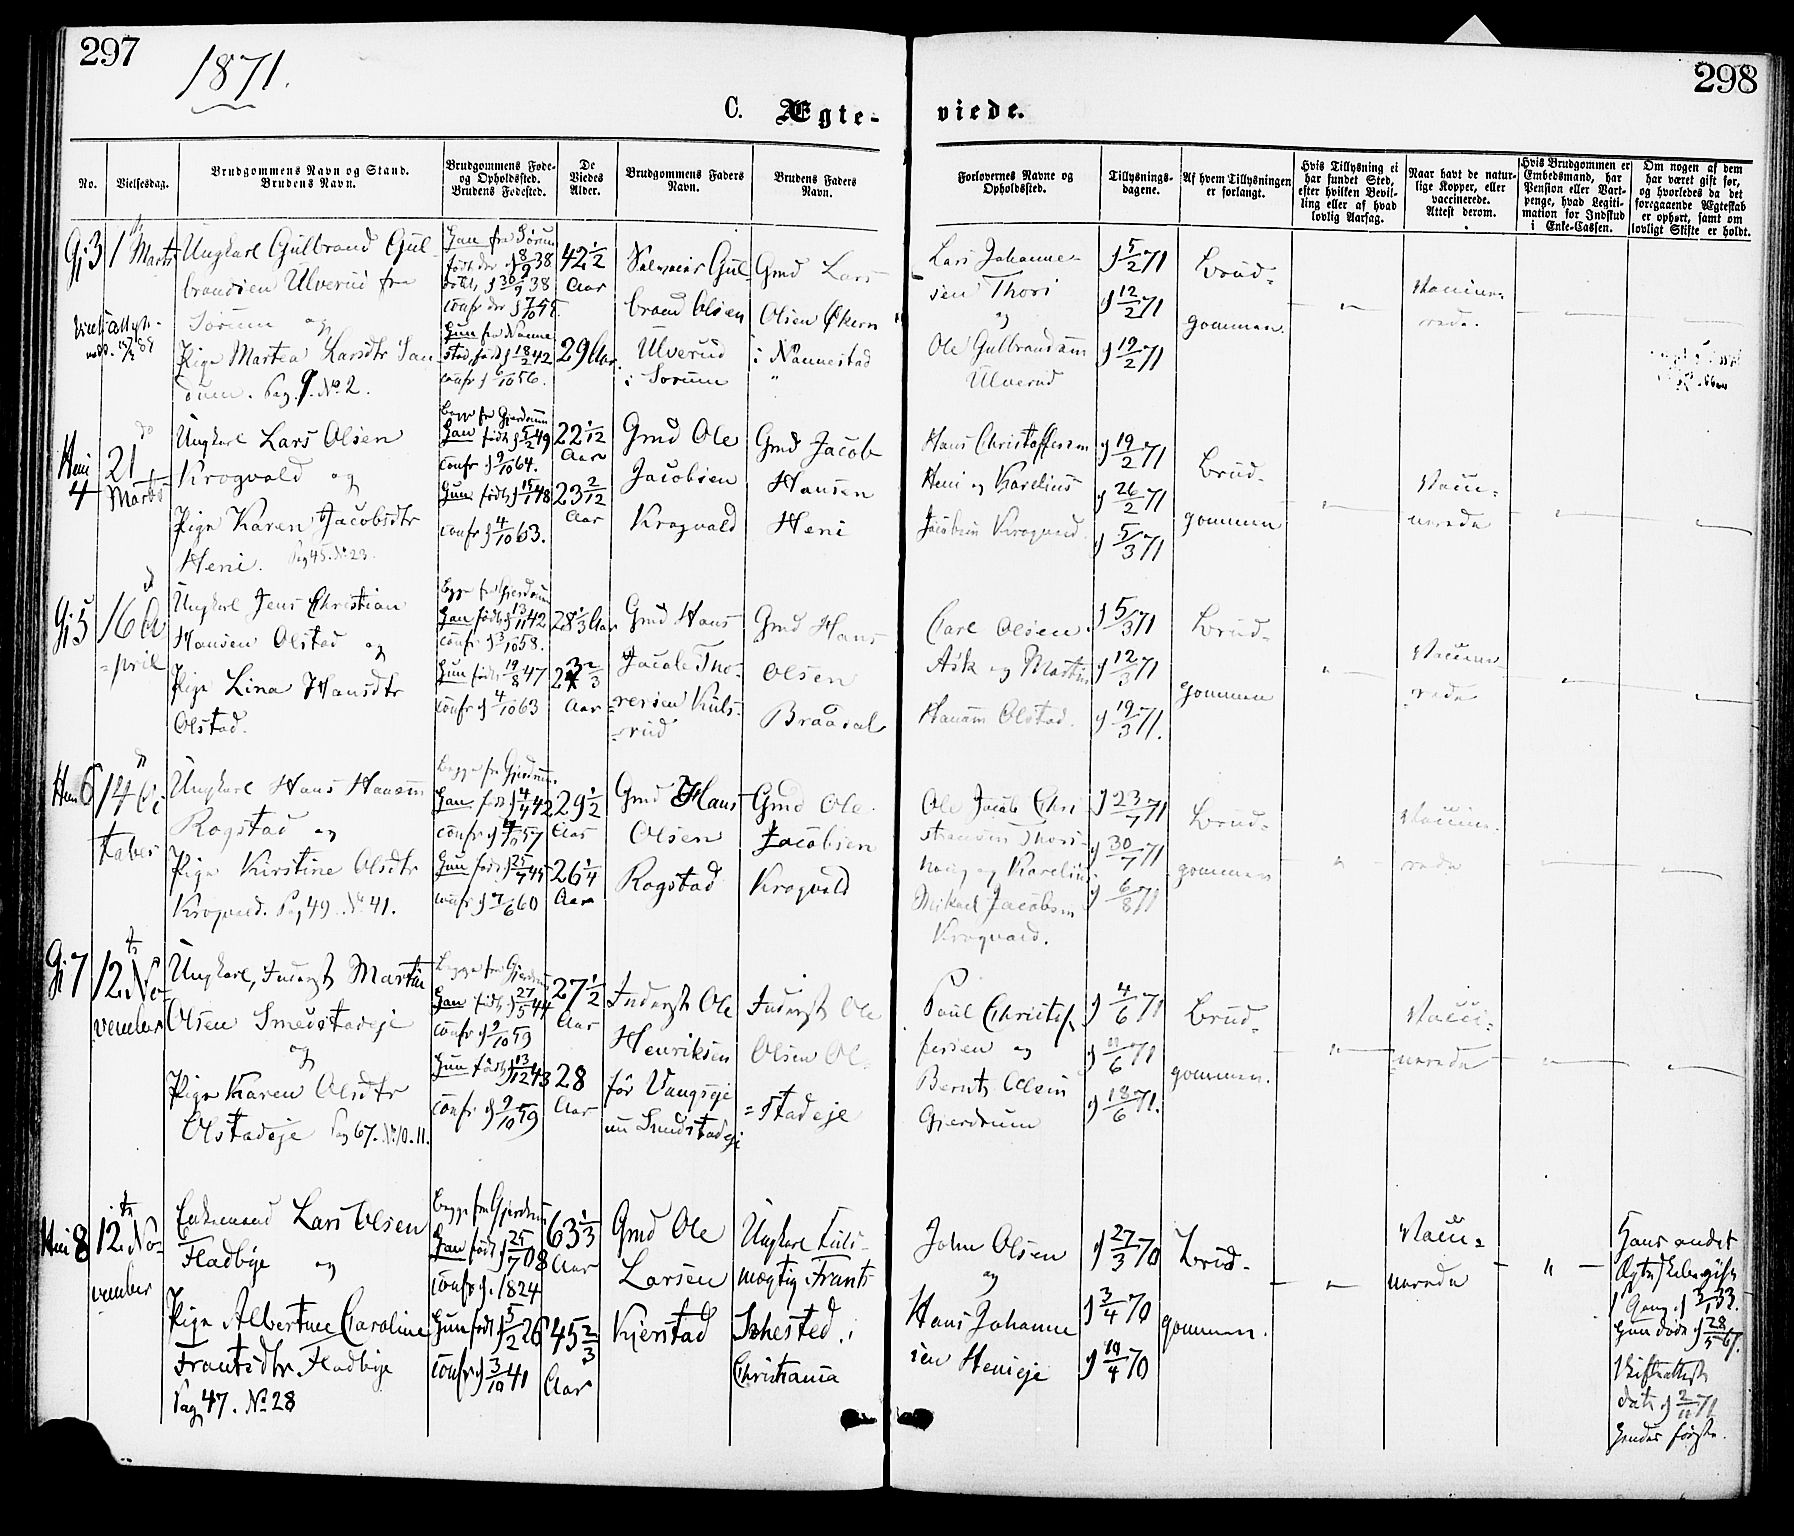 297
1871.
298
C. Ægte-
viede.
No.
Vielsesdag.
Brudgommens Navn og Stand.
Brudens Navn.
Brudgommens Føde-
og Opholdssted.
Brudens Fødested.
De
Viedes
Alder.
Brudgommens Faders
Navn.
Brudens Faders
Navn.
Forlovernes Navne og
Opholdssted.
Tillysnings-
dagene.
Af hvem Tillysningen
er forlangt.
Hvis Tillysning ei
har fundet Sted,
efter hvilken Bevil-
ling eller af hvad
lovlig Aarsag.
Naar havt de natur-
lige Kopper, eller
vaccinerede.
Attest derom.
Hvis Brudgommen er
Embedsmand, har
Pension eller Vart-
penge, hvad Legiti-
mation for Indskud
i Enke-Cassen.
Om nogen af dem
har været gift før,
og hvorledes da det
foregaaende Ægteskab
er ophørt, samt om
lovligt Skifte er holdt.
Gj 3
1 Marts
Ungkarl Gulbrand Gul-
brandsen Ulverud fra
Sørum og
Pige Martea Larsdtr San-
dum. Pag. 9. No 2.
Han fra Sørum
født den 8/9 38
døbt 30/9 38
confr den 7/10 55.
Hun fra Nanne-
stad født 18/2 42
confr 5/10 56.
42½
Aar
29 Aar.
Gul-
brand Olsen
Ulverud
i Sørum
Gmd Lars
Olsen Økern
i Nannestad
Lars Johanne-
sen Thori
og
Ole Gulbrandsen
Ulverud
5/2 71
12/2 71
19/2 71
Brud-
gommen.
Vaccine-
rede.
Heni
4
21
Marts
Ungkarl Lars Olsen
Krogvold og
Pige Karen Jacobsdtr
Heni. Pag 45. No 23.
Begge fra Gjerdrum
Han født 5/2 49
confr 9/10 64.
Hun født 15/1 48
confr 4/10 63.
22 1/12
Aar
23 2/12
Aar
Gmd Ole
Jacobsen
Krogvold
Gmd Jacob
Hansen
Heni
Hans Christoffersen
Heni og Karelius
Jacobsen Krogvold.
19/2 71
26/2 71
5/3 71
Brud-
gommen
Vacci-
nerede
Gj 5
16 A-
pril
Ungkarl Jens Christian
Hansen Olstad og
Pige Lina Hansdtr
Olstad.
Begge fra Gjerdrum
Han født 13/11 42
confr 3/10 58.
Hun født 19/8 47
confr 4/10 63
28⅓ Aar
Aar
Gmd Hans
Jacob Tho-
resen Kuls-
rud
Gmd Hans
Olsen
Braadal
Carl Olsen
Ask og Martin
Hansen Olstad.
5/3 71
12/3 71
19/3 71.
Brud-
gommen
Vaccine-
rede
Heni 6
14 Oc
tober
Ungkarl Hans Hansen
Rogstad og
Pige Kirstine Olsdtr
Krogvold. Pag 49. No 41.
Begge fra Gjerdrum.
Han født 4/4 42
confr 4/10 57
Hun født 25/7 45
confr 7/6 60
29½
Aar
26¼
Aar
Gmd Hans
Olsen
Rogstad
Gmd Ole
Jacobsen
Krogvold
Ole Jacob Chri
stensen Thors-
haug og Karelius
Mikael Jacobsen
Krogvold.
23/7 71
30/7 71
6/8 71
Brud-
gommen
Vaccine-
rede
Gj 7
12 No-
vember
Ungkarl, Inderst Martin
Olsen Smedstadeje
og
Pige Karen Olsdtr
Olstadeje Pag 67. No 10. 11.
Begge fra Gjerdrum
Han født 27/5 44
confr 9/10 59
Hun født 13/12 43
confr 9/10 59
27½
Aar
28
Aar
Inderst Ole
Henriksen
før Vangseje
nu Smedstadeje
Inderst Ole
Olsen Ol-
stadeje
Paul Christof-
fersen og
Bernt Olsen
Gjerdrum
4/6 71
11/6 71
18/6 71.
Brud-
gommen.
Vacci-
nerede
Heni 8
12 No-
vember
Enkemand Lars Olsen
Fladbye og
Pige Albertine Caroline
Frantsdtr Fladbye
Pag 47. No 28
Begge fra Gjerdrum
Han født 25/7 08
confr. 1824
Hun født 5/2 26
confr 3/10 41
63⅓
Aar
45⅔
Aar
Gmd Ole
Larsen
Kjerstad
Ungkarl Fuld-
mægtig Frants
Sehested i
Christiania
John Olsen
og
Hans Johanne
sen Henieje
27/3 70
3/4 70
10/4 70
Brud-
gommen.
Vacci-
nerede
Hans andet
Ægteskab gift
1 Gang 3/1 33.
Hun døde 28/5 67.
Skifteattest
dat. 2/11 71
Hendes første.